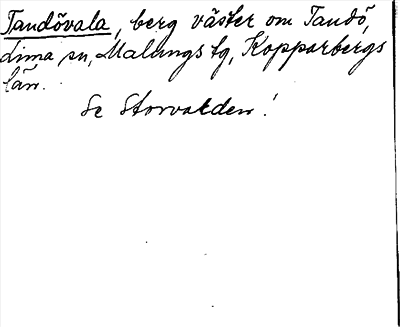 Tandövala, berg väster om Tandö,
Lima sn, Malungs tg, Kopparbergs
län.
Se Storvalden!